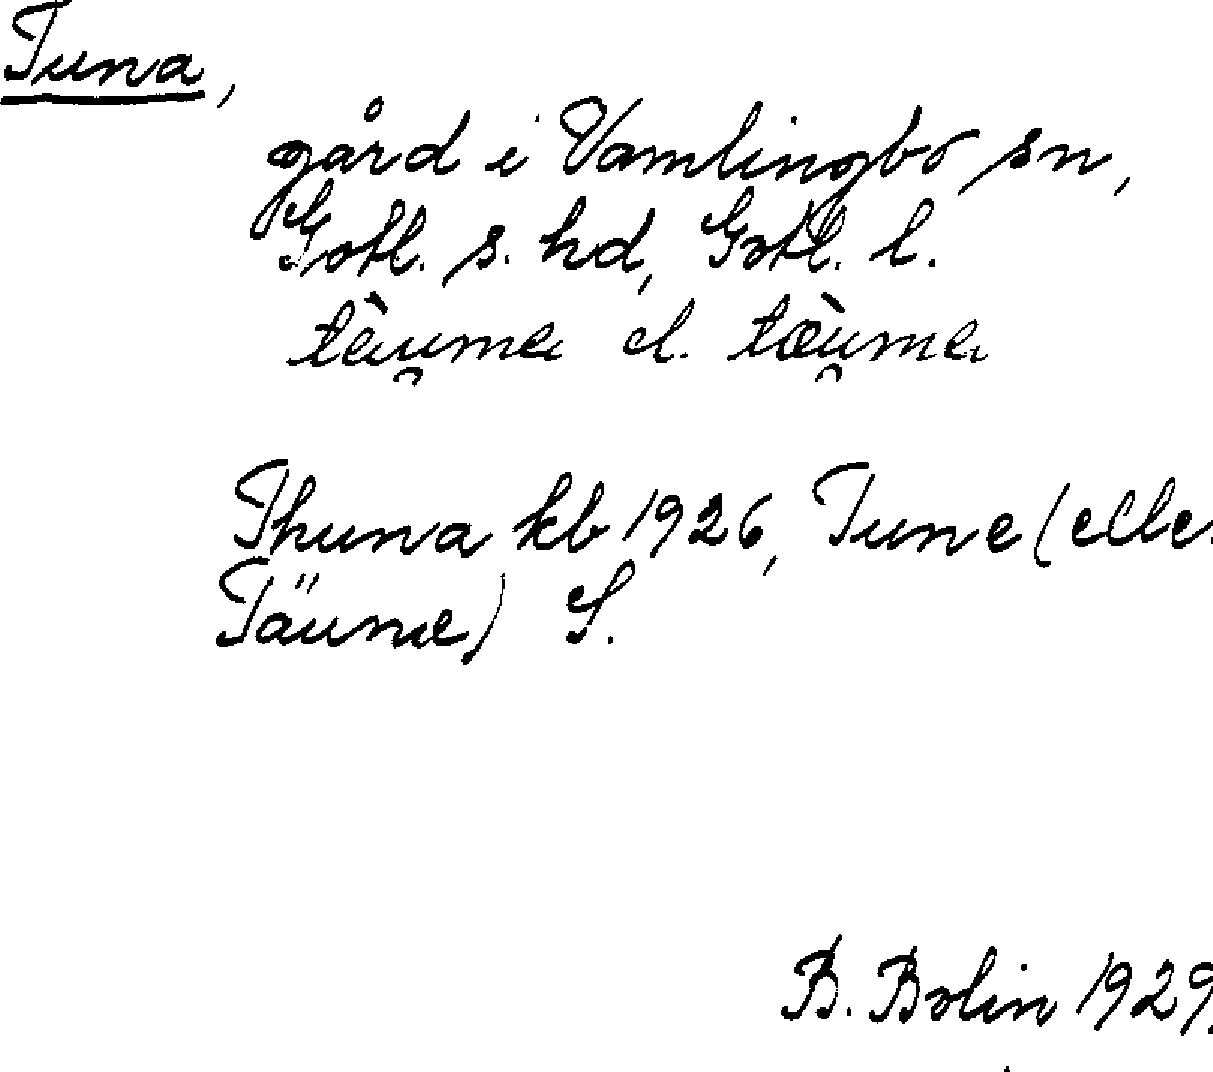 Tuna,
gård i Vamlingbo sn,
Gotl. s. hd, Gotl. l.
el.
Thuna kb 1926, Tune (eller
Täune) S.
B. Bolin 1929.